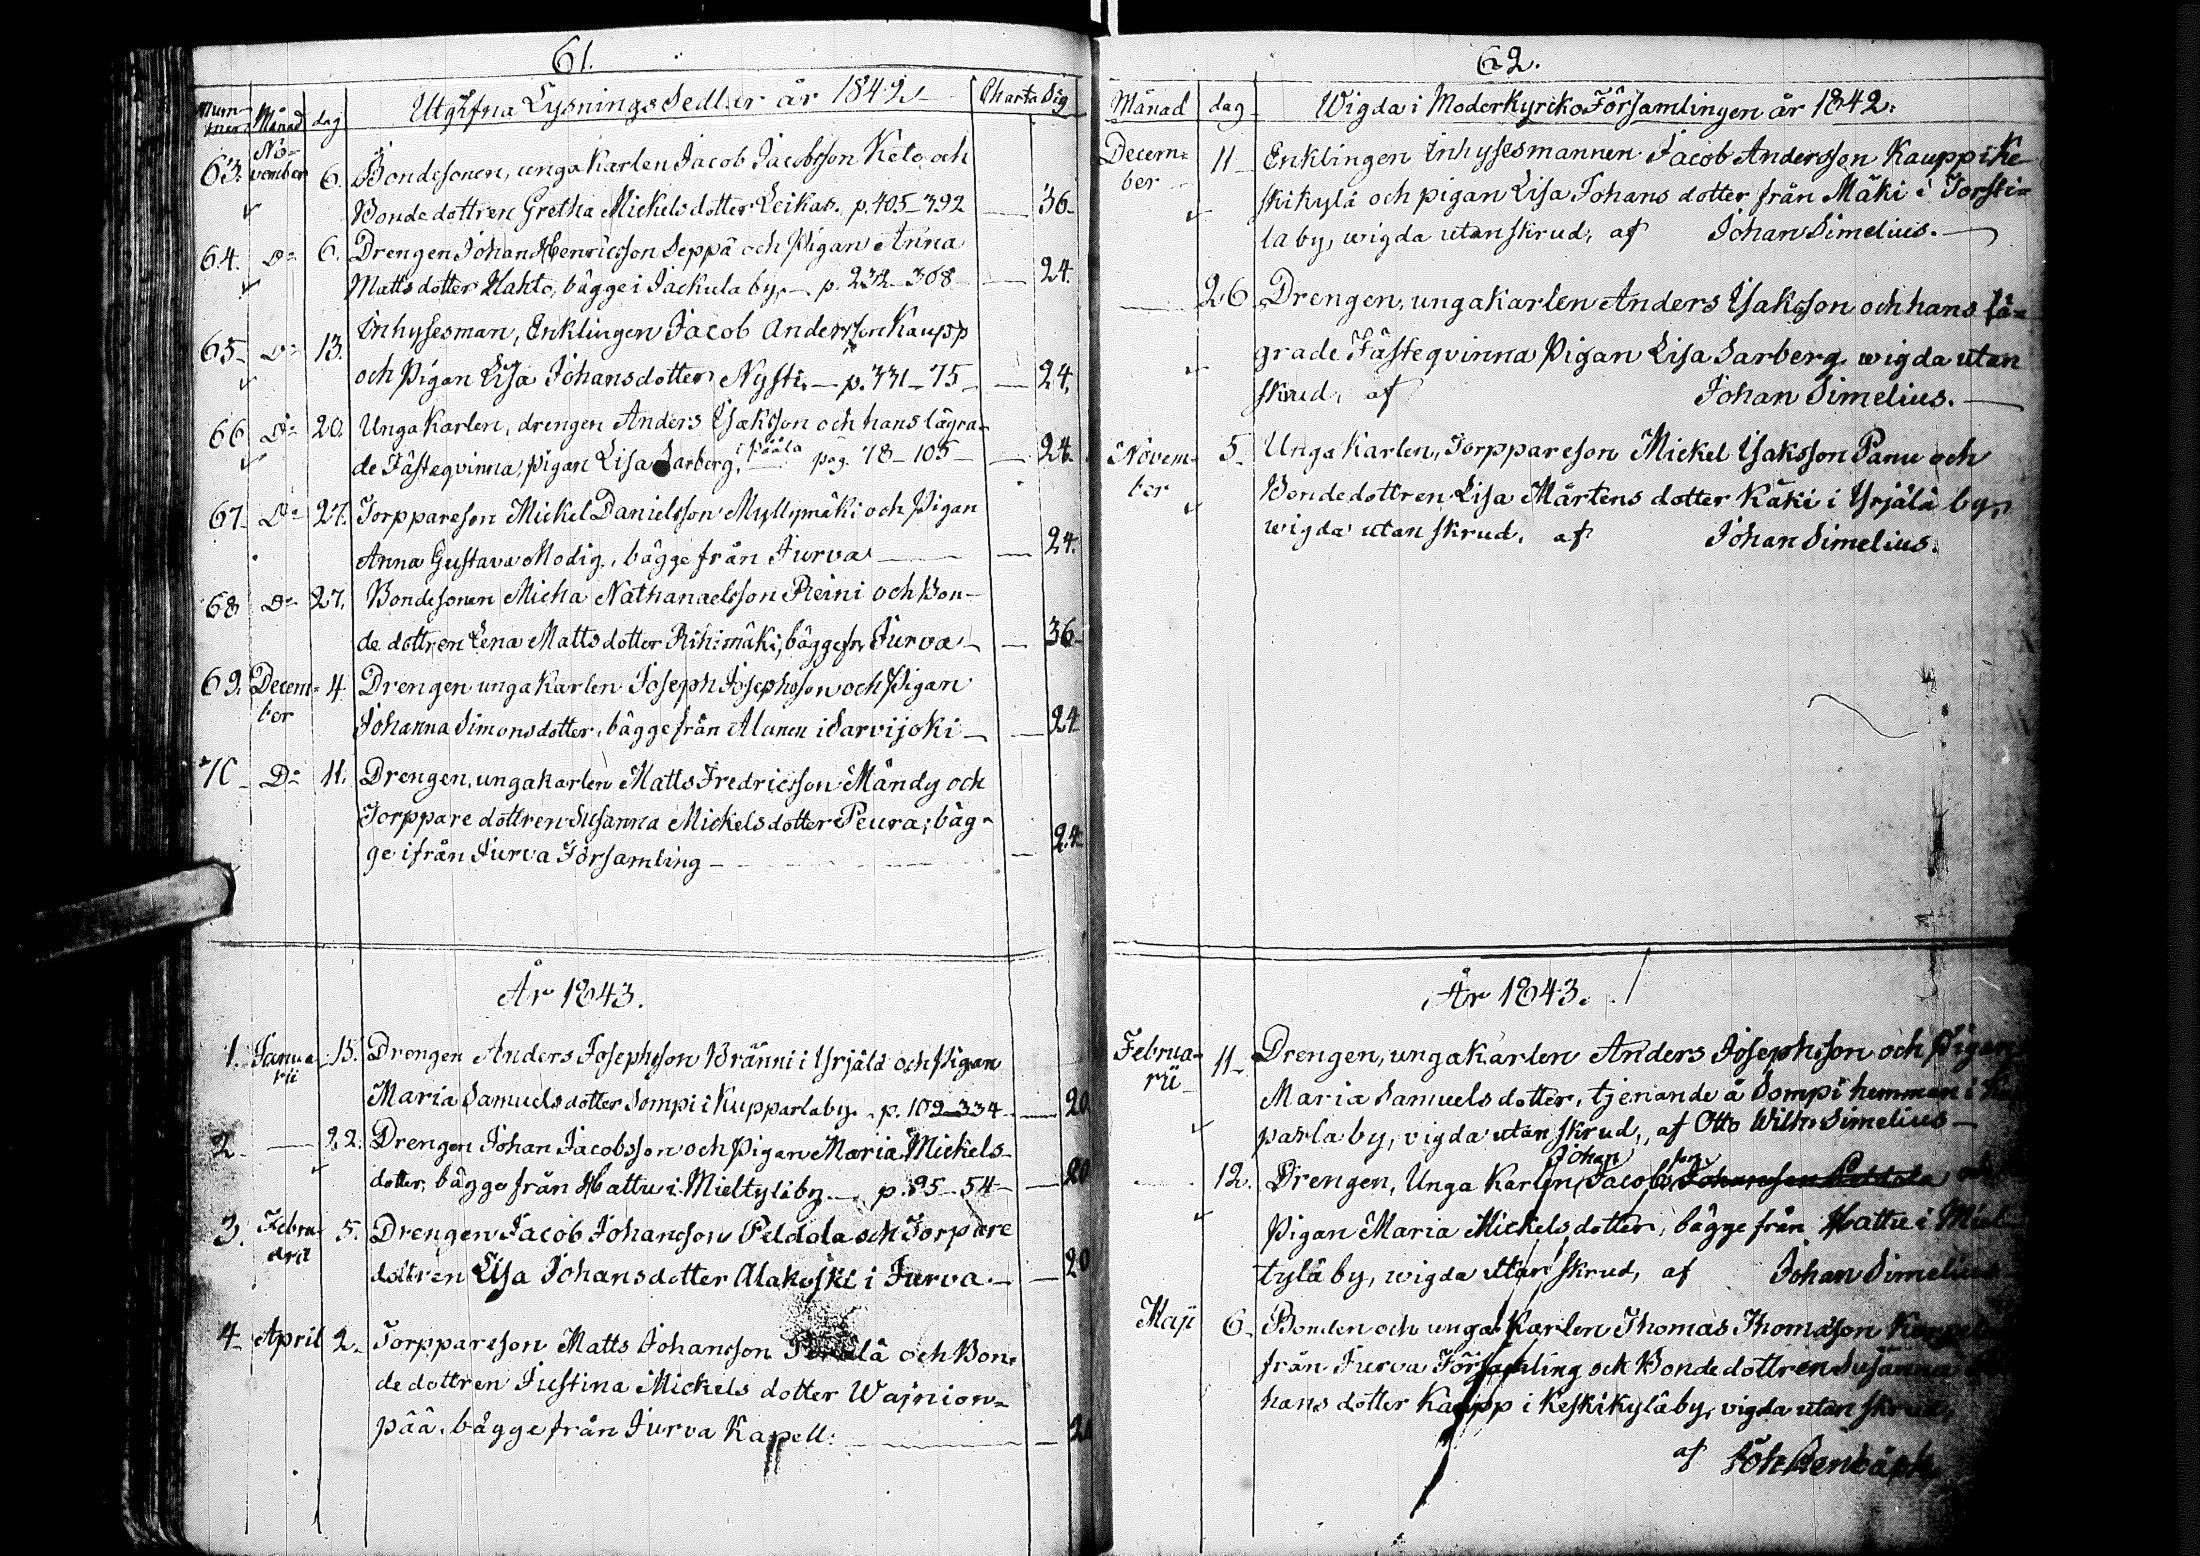 61.
Num-
mer Månad dag Utgifna Lysnings Sedlar år 1842. Charta Sig
63. No-
vember 6. Bondesonen, unga Karlen Jacob Jacobsson Keto, och
Bonde dottren Gretha Mickels dotter Leikas. p. 405–392 — 36–
64. Do 6. Drengen Johan Henricsson Seppä och Pigan Anna
Matts dotter Hahto, bägge i Jackula by, – p. 232–308 — 24.
65– Do 13. Inhysesman, Enklingen Jacob Andersson Kaupp
och Pigan Lisa Johansdotter Nysti, – p. 331–75 — 24.
66 Do 20. Unga Karlen, drengen Anders Isaksson och hans lägra-
de Fästeqvinna, pigan Lisa Sarberg, i Pääla pag. 78–105 — 24.
67– Do 27. Torppareson Mickel Danielsson Myllymäki och Pigan
Anna Gustava Modig, bägge från Jurva — 24.
68 Do 27. Bondesonen Micha Nathanaelsson Reini och Bon-
de dottren Lena Matts dotter Rihimäki, bägge fr. Jurva — 36–
69. Decem-
ber 4. Drengen unga Karlen Joseph Josephsson och Pigan
Johanna Simonsdotter, bägge från Alanen i Sarvijoki — 24
70– Do 11. Drengen, unga karlen Matts Fredricsson Mändy och
Torppare dottren Susanna Mickels dotter Peura, bäg-
ge ifrån Jurva Församling — 24
År 1843.
1. Janua-
rii 15. Drengen Anders Josephsson Bränni i Yrjälä och Pigan
Maria Samuels dotter Sompi i Kupparla by. p. 102–334 — 20
2. — 22. Drengen Johan Jacobsson och Pigan Maria Mickels-
dotter, bägge från Hattu i Mieltylä by. p. 95–54 — 20
3. Febru-
arii 5. Drengen Jacob Johansson Peldola och Torpare
dottren Lisa Johansdotter Alakoski i Jurva — 20
4– April 2. Torppareson Matts Johansson och Bon-
de dottren Justina Mickels dotter Wajnion-
pää, bägge från Jurva Kapell: — 20
62.
Månad dag Wigda i Moderkyrko Församlingen år 1842.
Decem-
ber 11– Enklingen Inhysesmannen Jacob Andersson Kaupp i Ke-
skikylä och pigan Lisa Johans dotter från Mäki i Torsti-
la by, wigda utan skrud, af Johan Simelius. —
— 26 Drengen, unga Karlen Anders Isaksson och hans lä-
grade Fästeqvinna Pigan Lisa Sarberg wigda utan
skrud, af Johan Simelius. —
Novem-
ber 5– Unga Karlen, Torppareson Mickel Isaksson Panu och
Bondedottren Lisa Mårtens dotter Käki i Yrjälä by,
wigda utan skrud, af Johan Simelius.
År 1843.
Februa-
rii 11– Drengen, unga karlen Anders Josephsson och Pigan
Maria Samuels dotter, tjenande å Sompi hemman i
parla by, vigda utan skrud, af Otto Wilh. Simelius –
Johan son
12. Drengen, Unga Karlen, Jacobs Johansson Peldola
Pigan Maria Mickels dotter, bägge från Hattu i Miel-
tylä by, wigda utan skrud, af Johan Simelius
Maji 6– Bonden och unga Karlen Thomas Thomasson
från Jurva Församling och Bonde dottren Susanna
hans dotter Kaupp i Keskikylä by, vigda utan skrud,
af